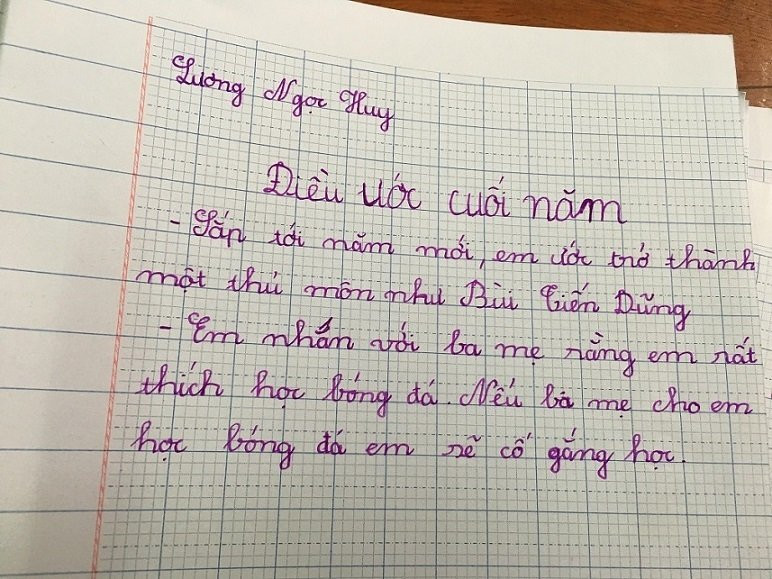 Lương Ngọc Huy
Điều ước cuối năm
- Sắp tới năm mới, em ước trở thành
một thủ môn như Bùi Tiến Dũng
- Em nhắn với ba mẹ rằng em rất
thích học bóng đá. Nếu ba mẹ cho em
học bóng đá em sẽ cố gắng học.